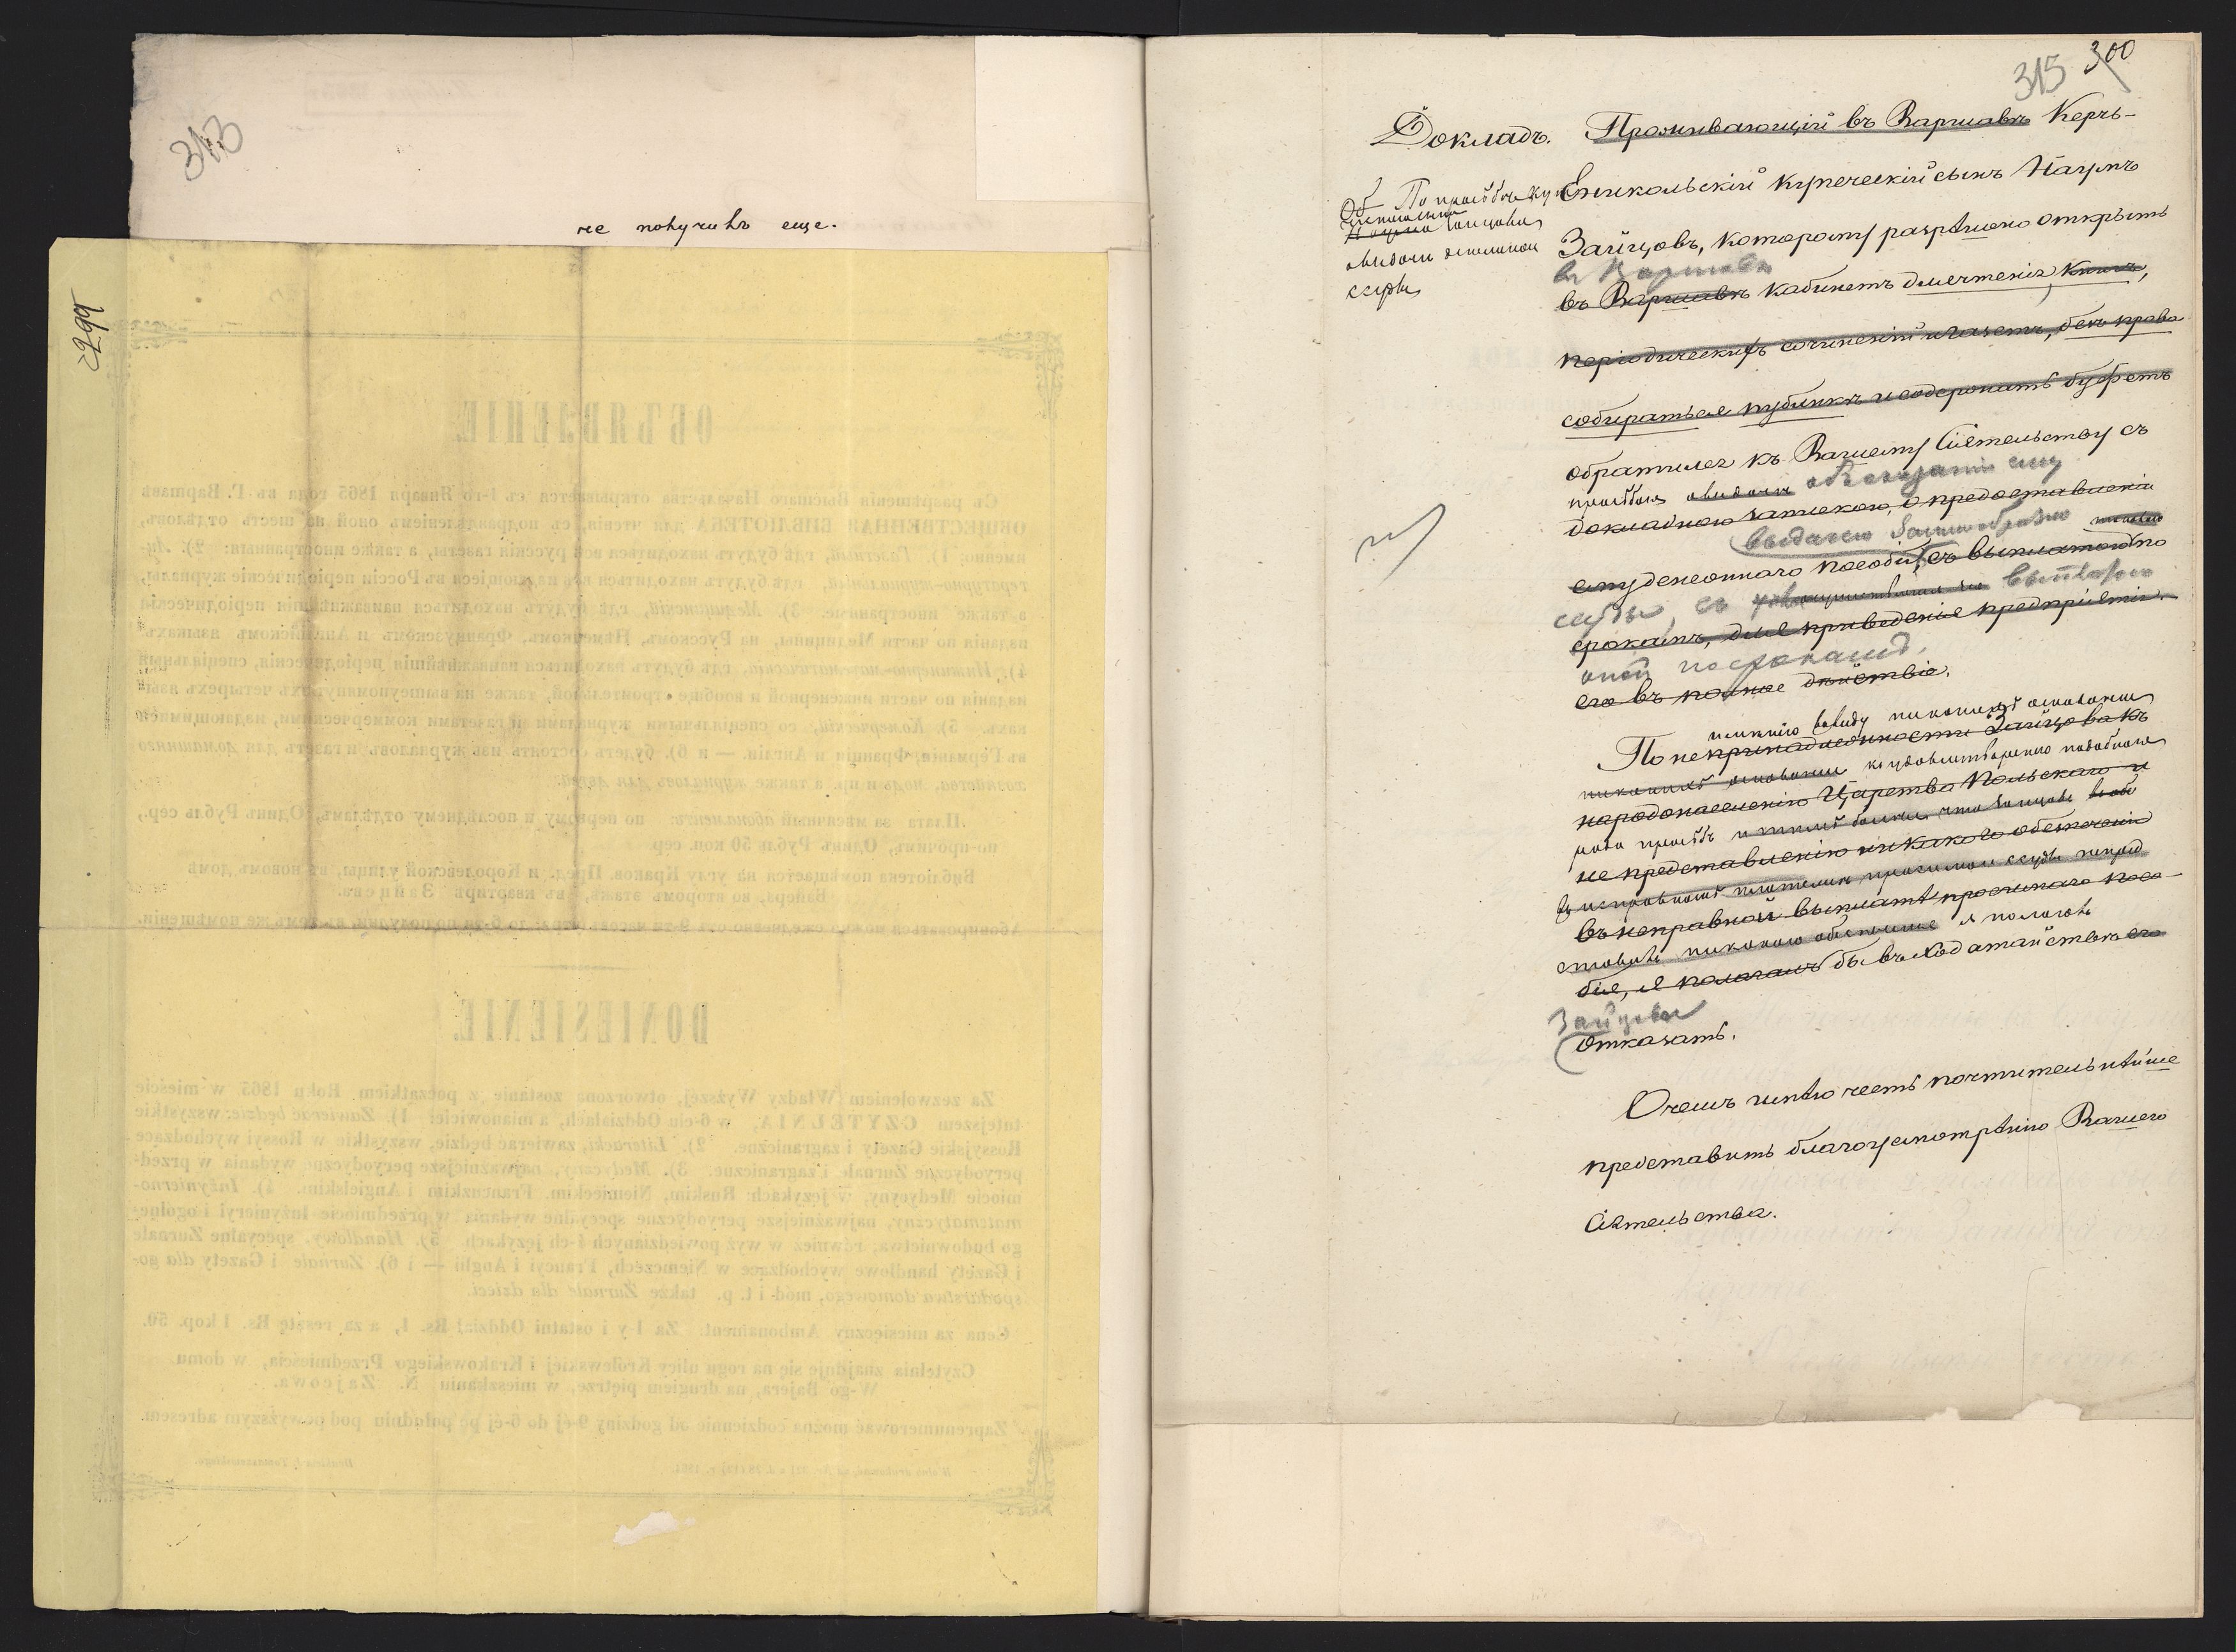 313
не получивъ еще.
299
ОБЪЯВЛЕНІЕ.
Съ разрѣшенія Высшаго Начальства открывается съ 1-го Января 1865 года въ Г. Варшавѣ
ОБЩЕСТВЕННАЯ БИБЛІОТЕКА для чтенія, съ подраздѣленіемъ оной на шесть отдѣловъ,
именно: 1). Газетный, гдѣ будутъ находиться всѣ русскія газеты, а также иностранныя: 2). Ли-
тературно-журнальный, гдѣ будутъ находиться всѣ издающіеся въ Россіи періодическіе журналы,
а также иностранные. 3). Медицинскій, гдѣ будутъ находиться наиважнѣйшія періодическія
изданія по части Медицины, на Русскомъ, Нѣмецкомъ, Французскомъ и Англійскомъ языкахъ.
4). Инженерно-математическій, гдѣ будутъ находиться наиважнѣйшія періодическія, спеціальныя
изданія по части инженерной и вообще строительной, также на вышеупомянутыхъ четырехъ язы-
кахъ. 5). Комерческій, со спеціальными журналами и газетами коммерческими, издающимися
въ Германіи, Франціи и Англіи. — и 6). будетъ состоять изъ журналовъ и газетъ для домашняго
хозяйства, модъ и пр. а также журналовъ для дѣтей.
Плата за мѣсячный абонементъ: по первому и послѣднему отдѣламъ, Одинъ Рубль сер.,
по-прочимъ, Одинъ Рубль 50 коп. сер.
Библіотека помѣщается на углу Краков. Пред. и Королевской улицы, въ новомъ домѣ
Байера, во второмъ этажѣ, въ квартирѣ Зайцева.
Абонироваться можно ежедневно отъ 9-ти часовъ утра до 6-ти по полудни, въ томъ же помѣщеніи.
DONIESIENIE.
Za zezwoleniem Władzy Wyższej, otworzona zostanie z początkiem Roku 1865 w mieście
tutejszem CZYTELNIA, w 6-ciu Oddziałach, a mianowicie: 1) Zawierac będzie: wszystkie
Rossyjskie Gazety i zagraniczne. 2). Literacki, zawierać będzie, wszystkie w Rossyi wychodzące
peryodyczne Żurnale i zagraniczne. 3). Medyczny, najważniejsze peryodyczne wydania w przed-
miocie Medycyny, w językach: Ruskim, Niemieckim, Francuzkim i Angielskim. 4). Inżynierno-
matematyczny, najważniejsze peryodyczne specyalne wydania w przedmiocie Inżynieryi i ogólne-
go budownictwa, również w wyż powiedzianych 4-ch językach 5). Handlowy, specyalne Żurnale
i Gazety handlowe wychodzące w Niemczech, Francyi i Anglii — i 6). Żurnale i Gazety dla go-
spodarstwa domowego, mód i t. p. także Żurnale dla dzieci.
Cena za miesięczny Ambonament: Za 1-y i ostatni Oddział Rs. 1, a za resztę Rs. 1 kop. 50.
Czytelnia znajduje się na rogu ulicy Królewskiej i Krakowskiego Przedmieścia, w domu
W-go Bajera, na drugiem piętrze, w mieszkaniu N. Zajcowa.
Zaprenumerować można codziennie od godziny 9-éj do 6-éj po południu pod powyższym adresem.
315 300
Докладъ.
Проживающій въ Варшавѣ Керчь-
Еникольскій купеческій сынъ Наумъ
Зайцовъ, которому разрѣшено открыть
въ Варшавѣ
въ Варшавѣ кабинетъ для чтенія книгъ,
періодическихъ сочиненій и газетъ, безъ права
собираться публикѣ и содержать буфетъ
обратился къ Вашему Сіятельству съ
просьбою о выдачѣ ему
докладною запискою, о предоставленіи
выдачею заимообразно
ссуды, съ
единовременнаго пособія, съ выплатою по
срокамъ, для приведенія предпріятія
оной по срокамъ,
его въ полное дѣйствіе.
По неимѣнію въ виду никакихъ основаній
непринадлежности Зайцова къ
никакихъ основаній къ удовлетворенію подобнаго
народонаселенію Царства Польскаго и
рода просьбъ и тѣмъ болѣе что Зайцовъ
не представленію никакого обезпеченія
въ исправной выплатѣ просимаго посо-
бія, я полагалъ бы въ ходатайствѣ его
Зайцова
отказать.
О чемъ имѣю честь почтительнѣйше
представить благоусмотрѣнію Вашего
Сіятельства.
По просьбѣ
Зайцова
о выдачѣ денежной
ссуды